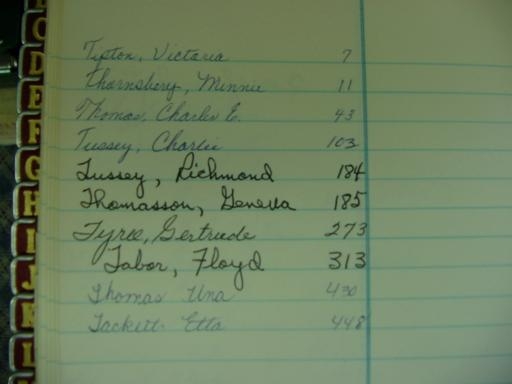 C
D
E
F
G
H
I
J
K
L
Tipton, Victoria 7
Thornsbery, Minnie 11
Thomas, Charles E. 43
Tussey, Charlie 103
Tussey, Richmond 184
Thomasson, Geneva 185
Tyree, Gertrude 273
Tabor, Floyd 313
Thomas Una 430
Tackett Etta 448